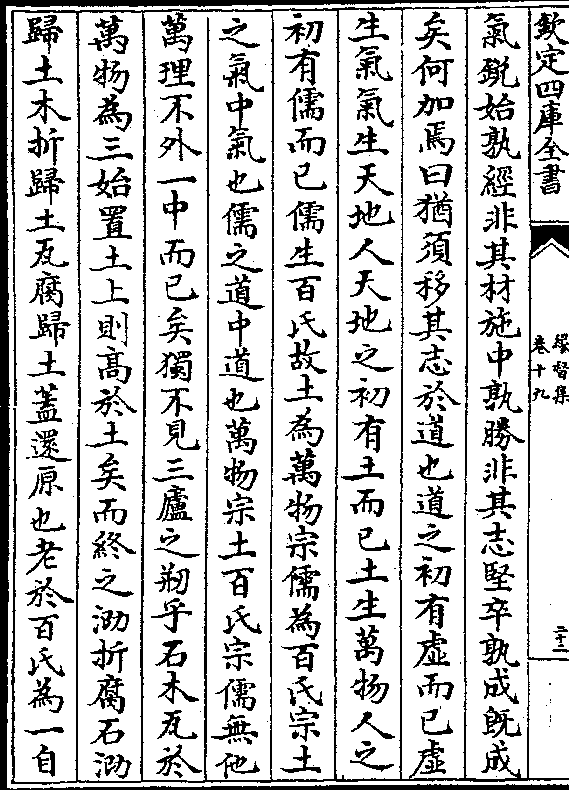 欽定四庫全書
緣督集
卷十九
二十二
氣銳始孰經非其材施中孰勝非其志堅卒孰成既成
矣何加焉曰猶須移其志於道也道之初有虛而已虛
生氣氣生天地人天地之初有土而已土生萬物人之
初有儒而已儒生百氏故土為萬物宗儒為百氏宗土
之氣中氣也儒之道中道也萬物宗土百氏宗儒無他
萬理不外一中而已矣獨不見三廬之剏乎石木瓦於
萬物為三始置土上則高於土矣而終之泐折腐石泐
歸土木折歸土瓦腐歸土蓋還原也老於百氏為一自